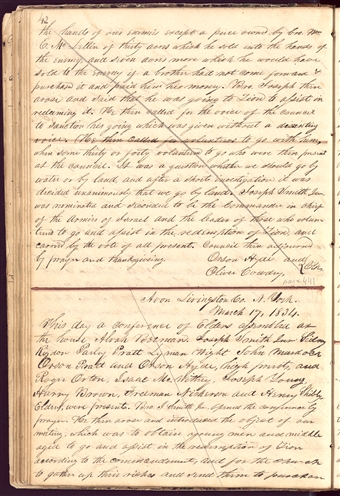 42
the hands of our enimies except a piece owned by bro. Wm
C. McLellen of thirty acres which he sold into the hands of
the enemy, and seven acres more which he would have
sold to the enemy if a brother had not come forward &
purchased it and paid him his money. Bro. Joseph then
arose and said that he was going to Zion to assist in
redeeming it. He then called for the voice of the council
to sanction his going which was given without a desenting
voice. He then called for volunteers to go with him,
when some thirty or forty volunteered to go who were then present
at the council. It was a question whether we should go by
water or by land, and after a short investigation it was
decided unanimously that we go by land. Joseph Smith Jun.
was nominated and seconded to be the Commander in chief
of the Armies of Israel and the leader of those who volun
teered to go and assist in the redemption of Zion and
carried by the vote of all present. Council then adjourned
by prayer and thanksgiving.
Orson Hyde and
Oliver Cowdery, Clerks
Avon Livingston Co. N. York.
March 17, 1834.
This day a conference of Elders assembled at
the house Alvah Beaman. Joseph Smith Jun. Sidney
Rigdon Parley Pratt Lyman Wight John Murdock
Orson Pratt and Orson Hyde, high priests, and
Roger Orton, Isaac McWithy, Joseph Young,
Henry Brown, Freeman Nickerson and Henry Shibly
Elders, were present. Bro. J. Smith Jun. opened the conference by
prayer. He then arose and introduced the object of our
meeting which was to obtain young men and middle
aged to go and assist in the redemption of Zion
according to the commandment, and for the church
to gather up their riches and send them to purchase